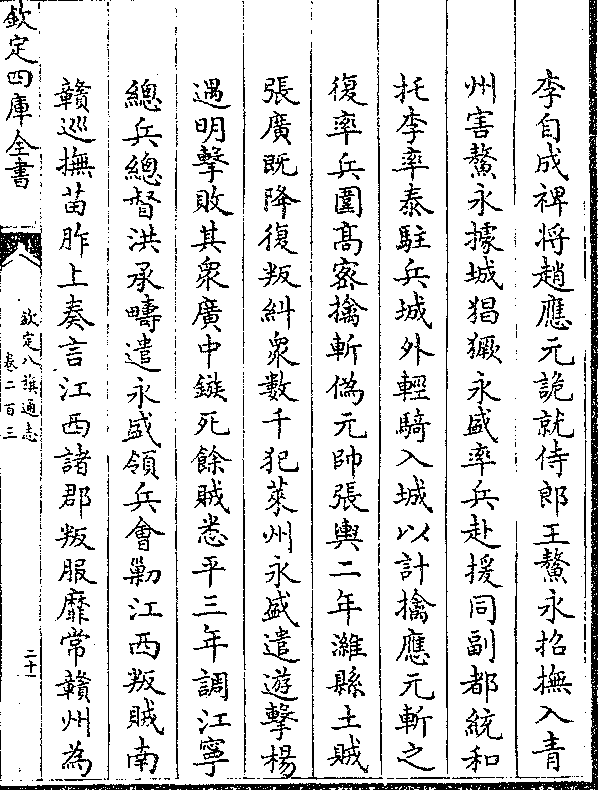 李自成裨将趙應元詭就侍郎王鰲永招撫入青
州害鰲永據城猖獗永盛率兵赴援同副都統和
托李率泰駐兵城外輕騎入城以計擒應元斬之
復率兵圍髙宻擒斬偽元帥張輿二年濰縣土賊
張廣既降復叛糾衆數千犯萊州永盛遣遊擊楊
遇明擊敗其衆廣中鏃死餘賊悉平三年調江寧
總兵總督洪承疇遣永盛領兵會勦江西叛賊南
贛巡撫苗胙上奏言江西諸郡叛服靡常贛州為
欽定四庫全書
欽定八旗通志
卷二百三
二十